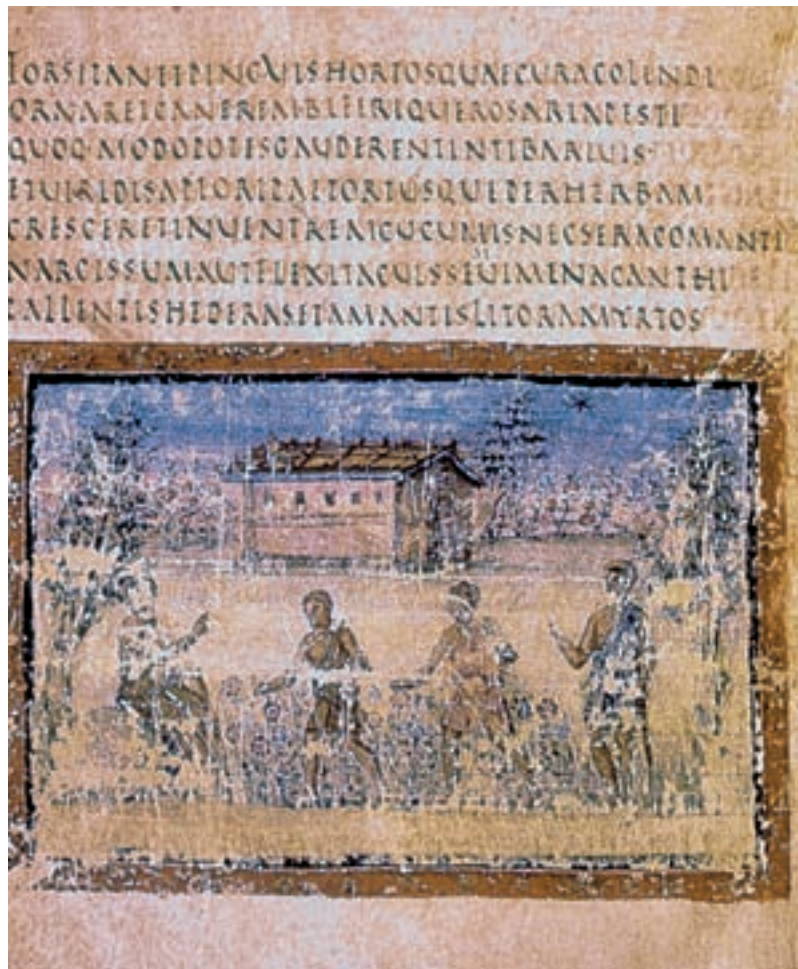 FORSITANETPINGUISHORTOSQUAECURACOLENDI
ORNARETCANEREMBIFERIQUEROSARIAPESTI
QUOQ·MODOPOTESGAUDERENTINTIBARIUIS·
ETUIRIDISAPIORIPAETORTUSQUEPERHERBAM
CRESCERETINUENTREMCUCUMISNECSERACOMANTE
NARCISSUMAUTFLEXITACUISSEMUIMENACANTHI
PALLENTISHEDERASETAMANTISLITORAMYRTOS